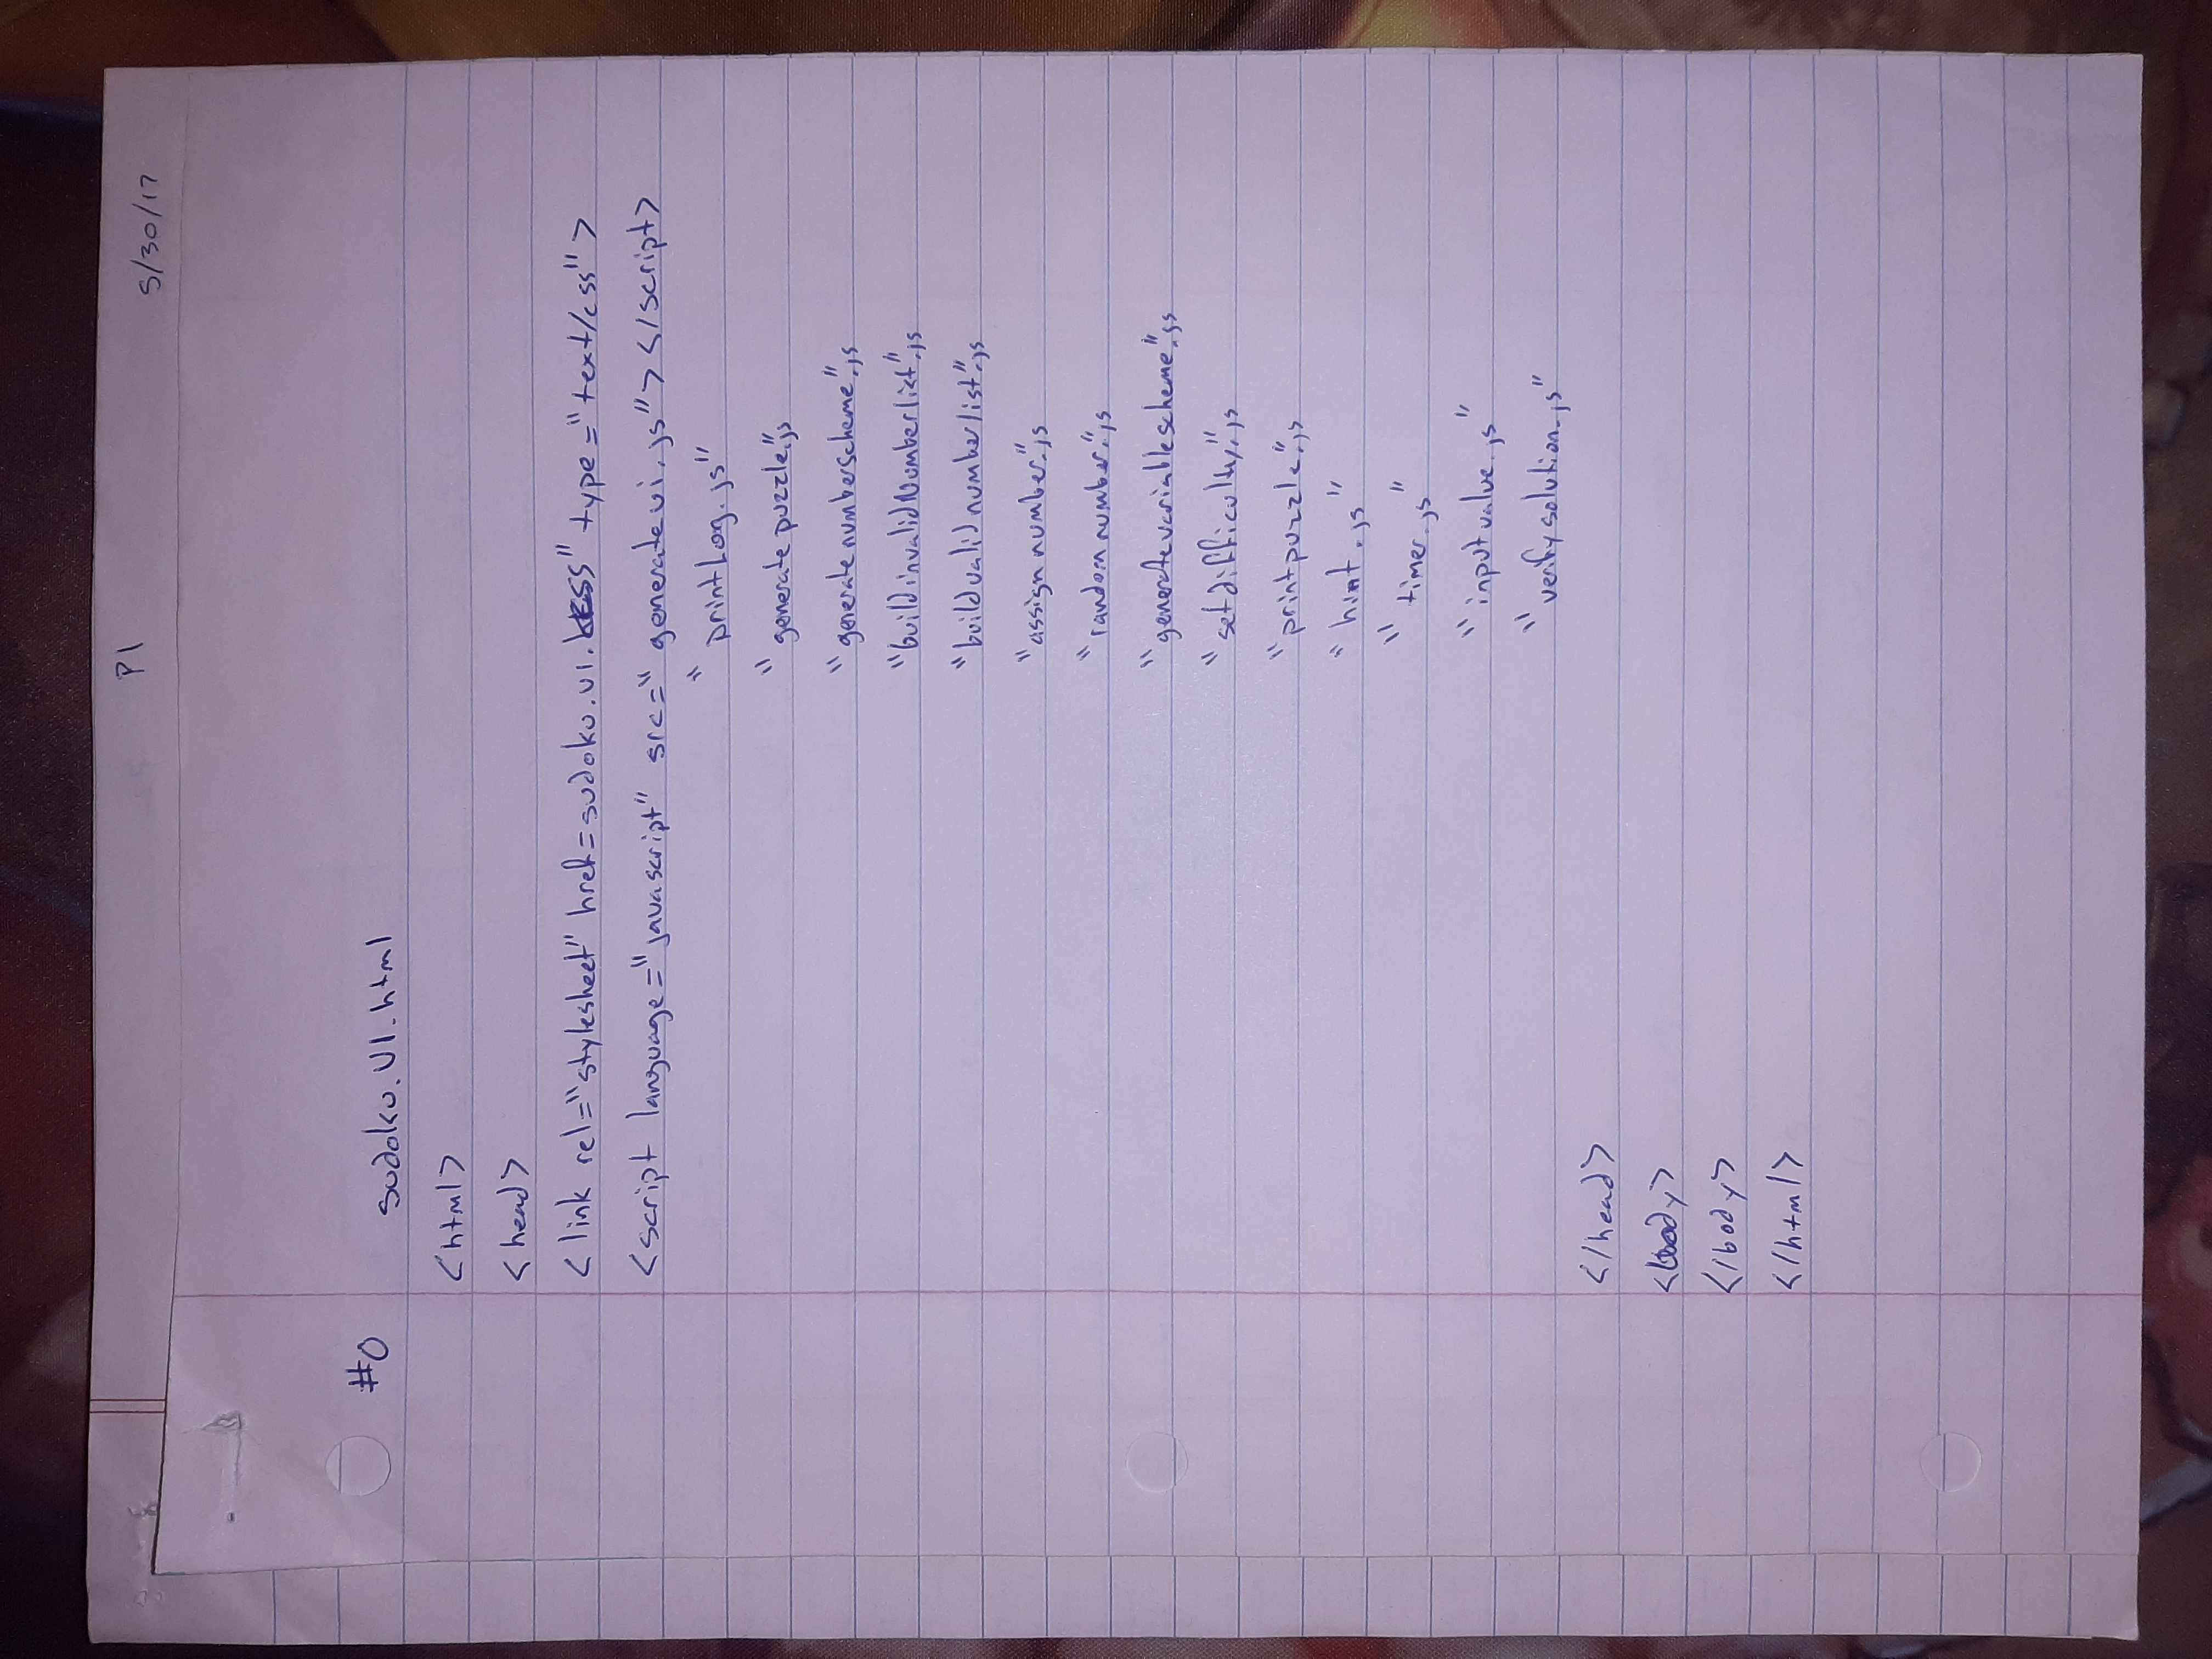 P1
5/30/17
#0 sudoku.V1.html
<html>
<head>
<link rel="stylesheet" href=sudoku.v1.css" type="text/css">
<script language="javascript" src="generateui.js"></script>
"printLog.js"
"generatepuzzle".js
"generatenumberscheme".js
"buildinvalidNumberlist".js
"buildvalidnumberlist".js
"assignnumber".js
"randomnumber".js
"generatevariablescheme".js
"setdifficulty".js
"printpuzzle".js
"hint.js"
"timer.js"
"inputvalue.js"
"verifysolution.js"
</head>
<body>
</body>
</html>